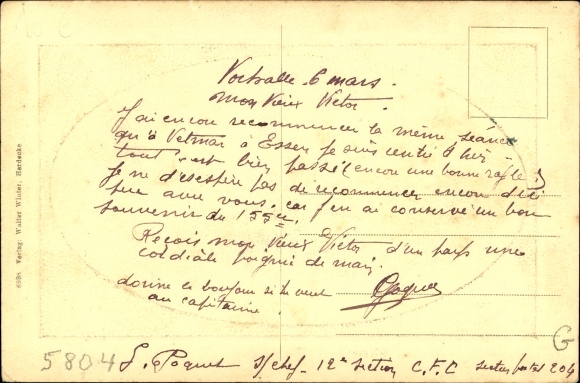 Vorhalle. 6 mars.
Mon Vieux Victor.
J'ai encore recommencer la même séance
qu'à Vetmar à Essen je suis rentré hier
tout s'est bien passé (encore une bonne rafle)
je ne désespère pas de recommencer encore
que avec vous, car j'en ai conservé un bon
souvenir du 155ce.
Reçois mon Vieux Victor d'un pays une
cordiale poignée de main.
donne le bonjour si tu veut
au capitaine.
Paquet
L. Paquet s/chef - 12e Section C.F.C secteur postal 204
5804
G
Verlag: Walter Winter, Herdecke